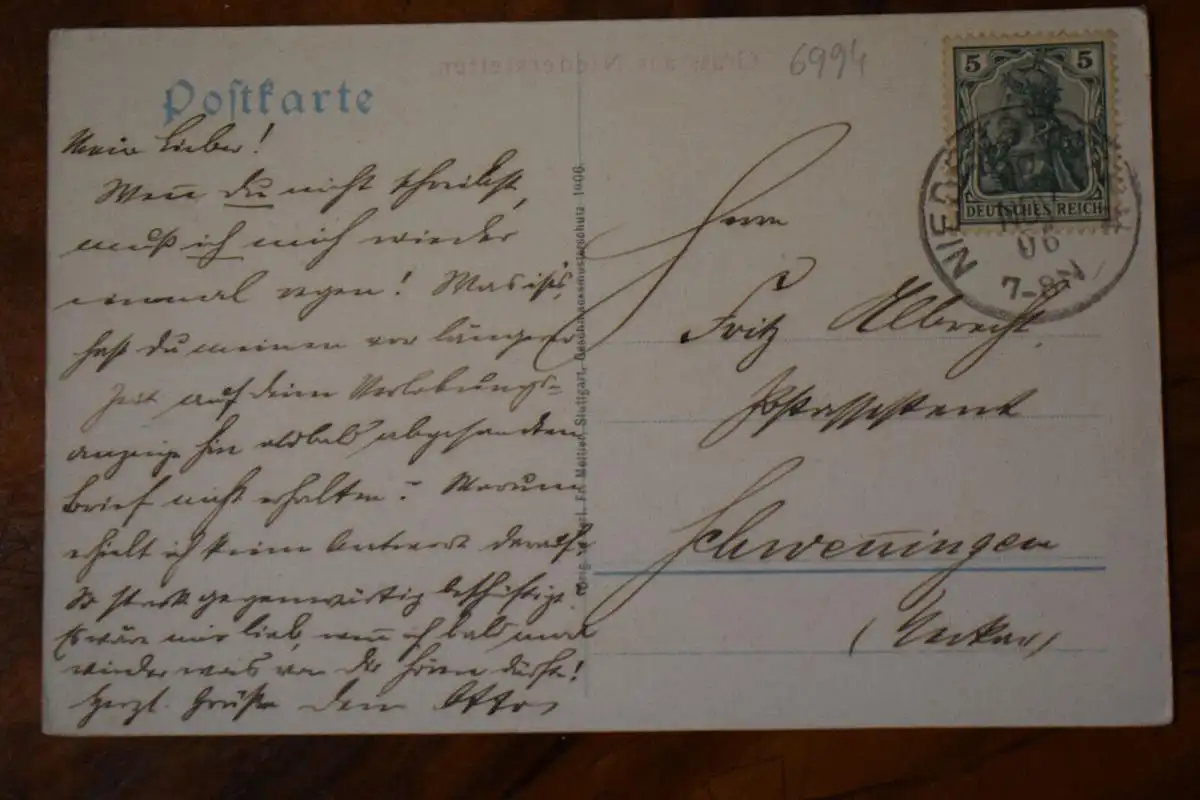 Postkarte
Gruss aus Niederstetten.
6994
5 5
DEUTSCHES REICH
NIED
06
7-8N
Mein Lieber!
Wenn Du nicht schreibst,
muß ich mich wieder
einmal regen! Was ist's,
hast du meinen vor längerer
Zeit auf deine Verlobungs-
anzeige hin abgesandten
Brief nicht erhalten? Warum
erhielt ich keine Antwort darauf?
So stark gegenwärtig beschäftigt?
Es wäre mir lieb, wenn ich bald mal
wieder was von Dir hören dürfte!
Herzl. Grüße Dein Otto
Geschmacksmusterschutz 1906.
Stuttgart,
Herrn
Fritz Albrecht
Postassistent
Schwenningen
(Neckar)